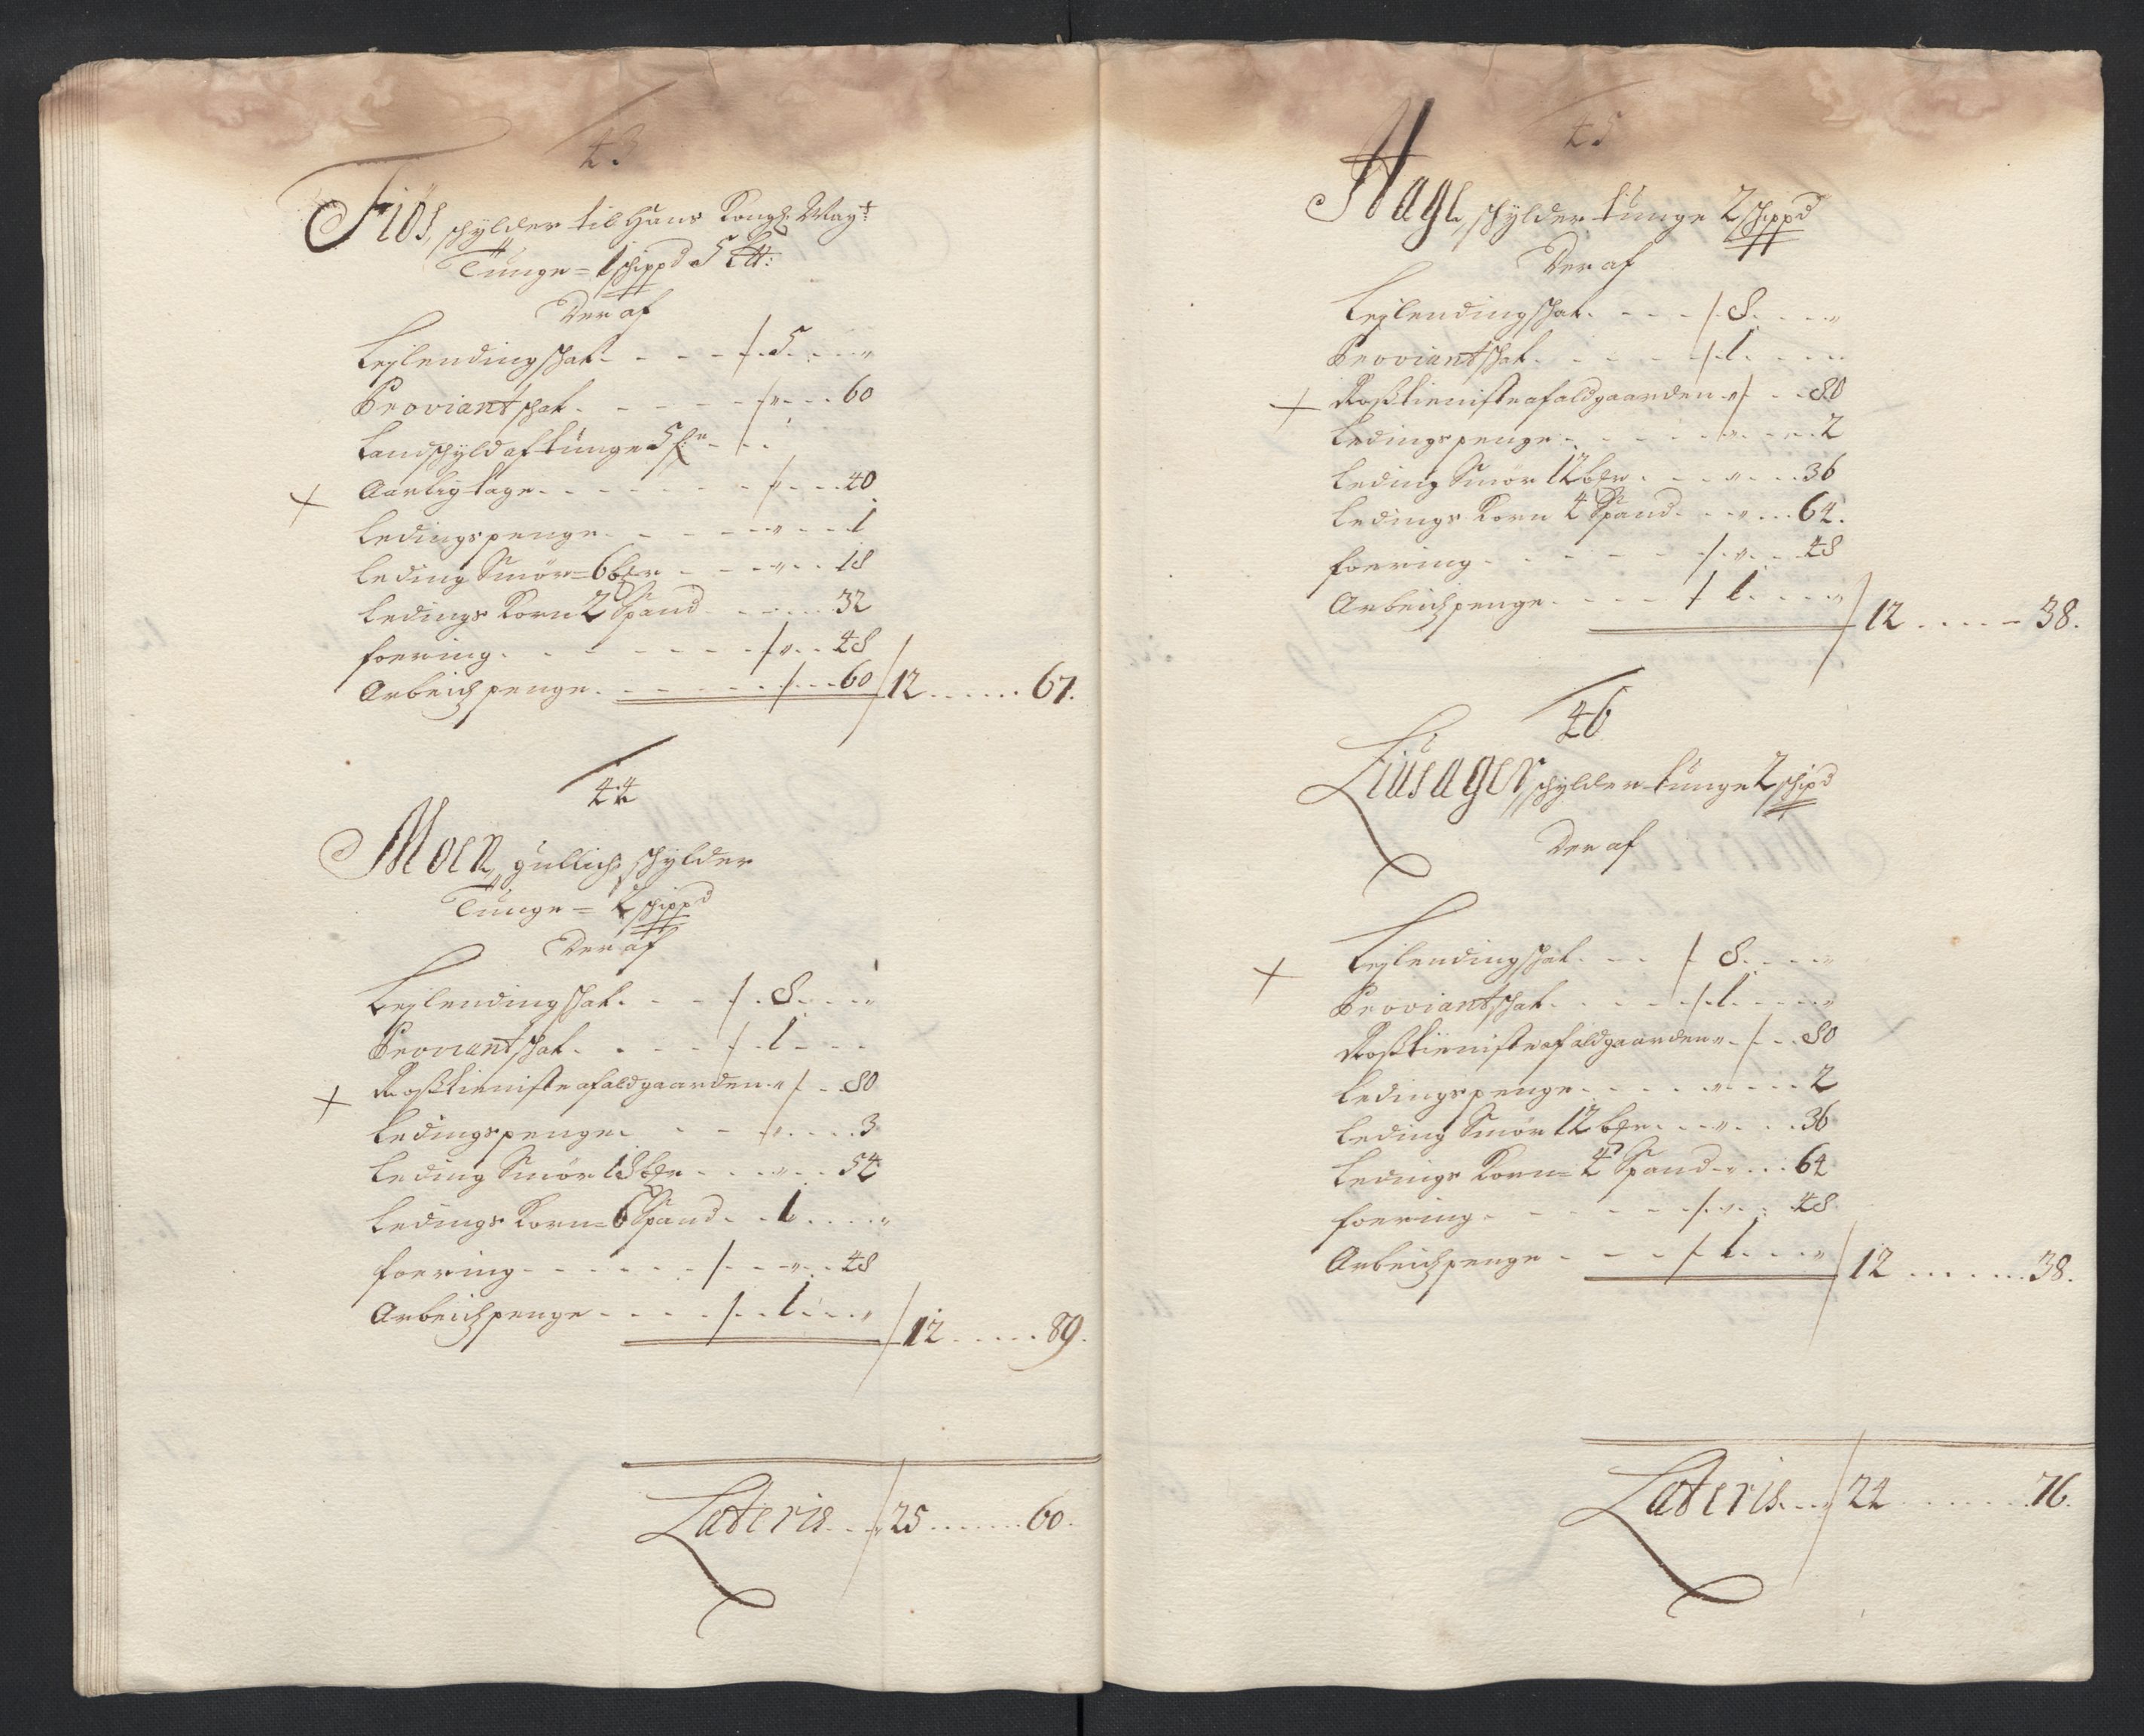 43
Fiös, schylder til Hans Kongl. Mayt:
Tunge = 1 schippd 5 L##:
Der af
Lejlending schat . . . . 5 . . . . "
Proviant schat . . . . . " . . . 60
Landschyld af tunge 5 . . .
Aarlig tage . . . . . . . . . 40
Ledings penge . . . . . " . . . 1
Leding Smör = 6 ber . . . " . . 18
Ledings Korn 2 Spand . . . . . 32
foering . . . . . . . . " . . 48
Arbeidz penge . . . . . . . . 60 12 . . . . . . 67.
44
Moen, gullich schylder
Tunge = 2 schippd
Der af
Lejlending schat . . . . 8 . . . "
Proviant schat . . . . . 1 . . .
+ Rosztieniste af aldgaarden " . . 80
Ledings penge . . . . " . . . . 3
Leding Smör 18 ber . . . " . . 54
Ledings Korn = 6 Spand . . 1 . . . . "
foering . . . . . . . . . " . . 48
Arbeidz penge . . . . . . 1 . . . " 12 . . . . . 89.
Lateris . . . 25 . . . . . . . 60.
45
Hage, schylder tunge 2 schippd
Der af
Lejlending schat . . . . 8 . . . . "
Proviant schat . . . . . 1 . . . . .
+ Rosztieniste af aldgaarden " . . 80
Ledings penge . . . . . " . . . . 2
Leding Smör 12 ber . . . . " . . . 36
Ledings Korn 4 Spand . . . " . . . 64.
foering . . . . . . . " . . 48
Arbeidz penge . . . . . 1 . . . . " 12 . . . . . 38.
46
Liusager, schylder tunge 2 schipd
Der af
+ Lejlending schat . . . 8 . . . . "
Proviant schat . . . . . . 1 . . . . . "
Rosztieniste af aldgaarden " . . . 80
Ledings penge . . . . . " . . . . 2
Leding Smör 12 ber . . . . " . . . 36
Ledings Korn = 4 Spand . . " . . . 64
foering . . . . . . . " . . 48
Arbeidz penge . . . . 1 . . . " 12 . . . . . . 38.
Lateris . . . 24 . . . . . . . 76.